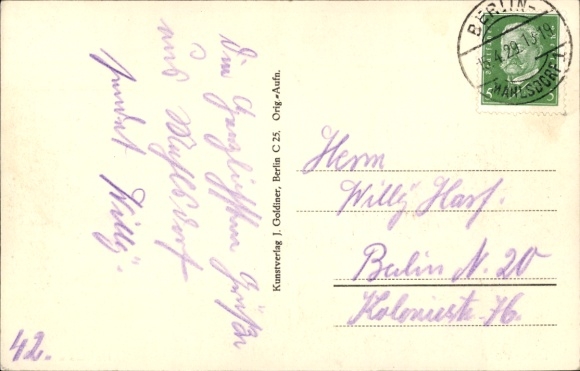 Die herzlichsten Grüße
aus Mahlsdorf
sendet Willy.
42.
Kunstverlag J. Goldiner, Berlin C 25. Orig.-Aufn.
BERLIN-
4.29.
(MAHLSDORF)
Herrn
Willy Harf.
Berlin N. 20
Koloniestr.